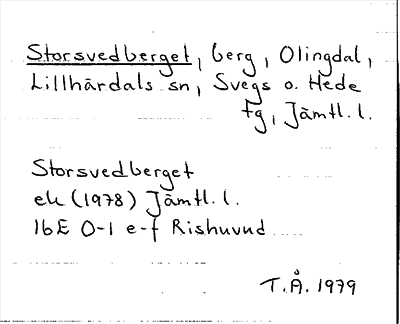 Storsvedberget, berg, Olingdal,
Lillhärdals sn, Svegs o. Hede
Fg, Jämtl. l.
Storsvedberget
ek (1978) Jämtl. l.
16E 0-1 e-f Rishuvud
T.Å. 1979